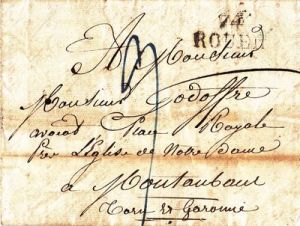 74
ROUEN
A Monsieur
Monsieur Godoffre
avocat Place Royale
Pres L'Eglise de Notre Dame
a Montauban
Tarn Et Garonne